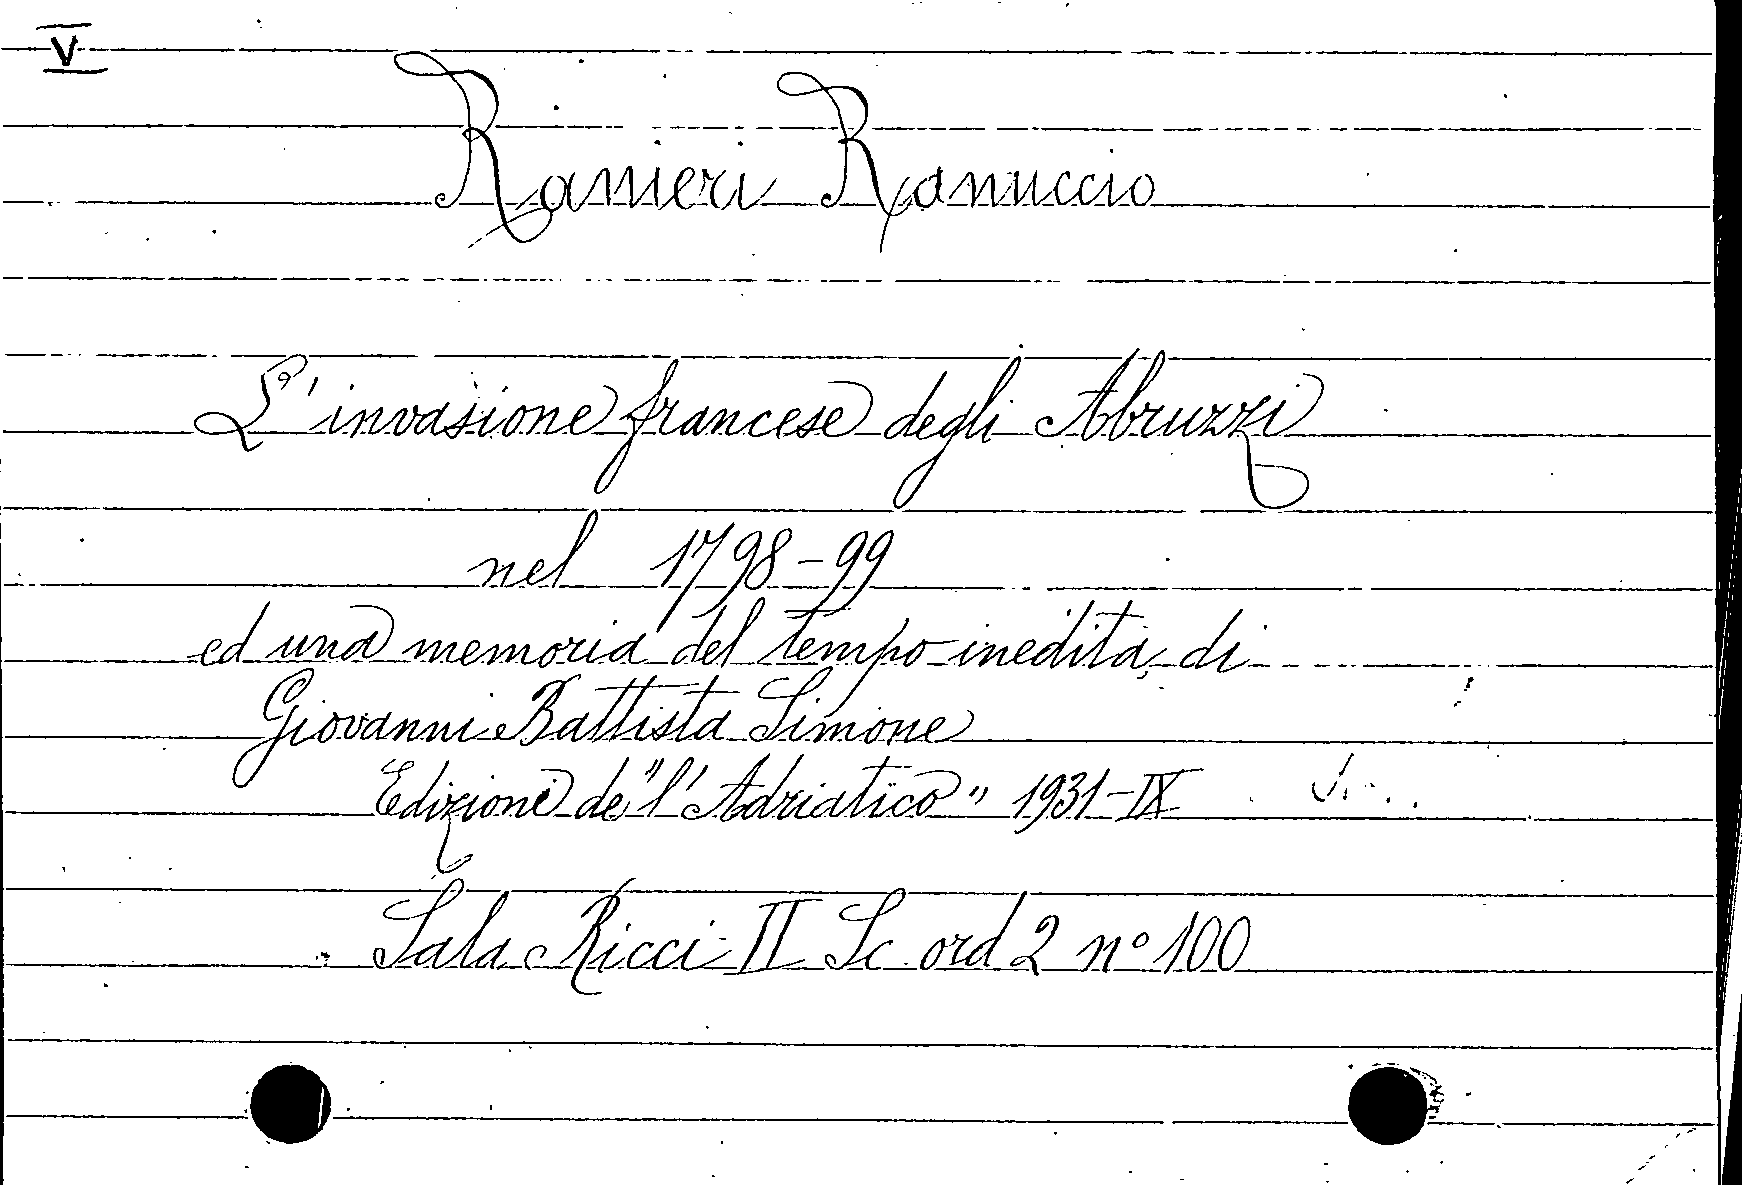 V
Ranieri Ranuccio
L'invasione francese degli Abruzzi
nel 1798-99
ed una memoria del tempo inedita, di
Giovanni Battista Simone
Edizione de "l'Adriatico" 1931-IX
Sala Ricci II Sc ord 2 n° 100